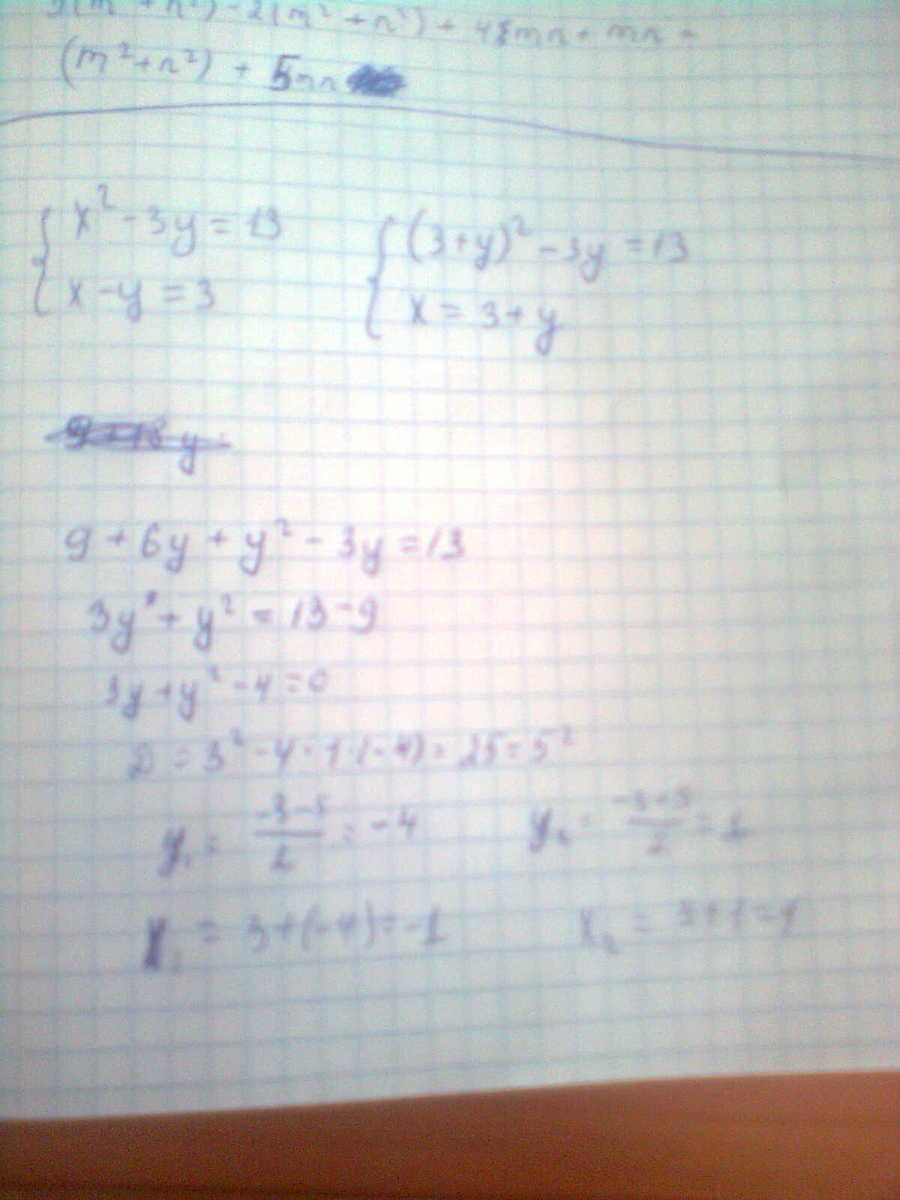 3(m²+n²)-2(m²+n²)+4mn+mn=
(m²+n²)+5mn
x²-3y=13 (3+y)²-3y=13
x-y=3 x=3+y
9+6y+y²-3y=13
3y+y²=13-9
3y+y²-4=0
D=3²-4·1·(-4)=25=5²
y₁=(-3-5)/2=-4 y₂=(-3+5)/2=1
x₁=3+(-4)=-1 x₂=3+1=4